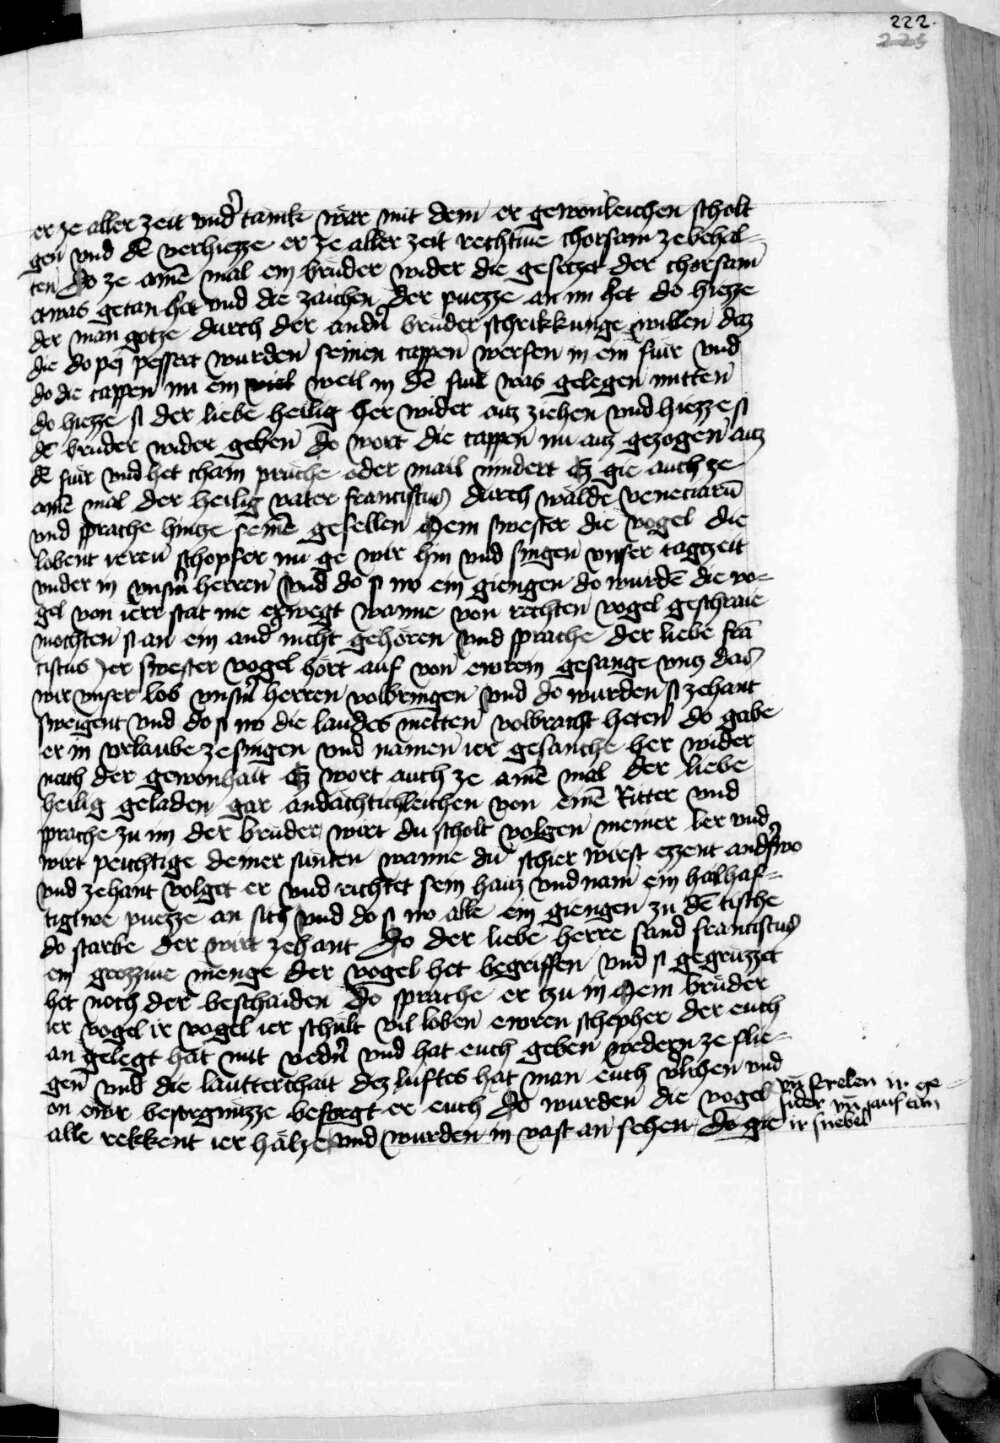 222.
225
er ze aller zeit vnd᷑tanik wär mit dem er gewonleichen scholt
gen vnd dē verhiezze er ze aller zeit rechtiue chorsam ze behal-
ten Do ze amē mal ein brüder wider die gesetzet der chorsam
etwas getan het vnd die zaichen der puezze an im het do hiezze
der man gotze durch der andn̄ brüder schrikkunge willen daz
die do pei pessert wurden seinen tappen werfen in ein fiur vnd
do die tappen nu ein weil in dē fiur was gelegen mitten
do hiezze si der liebe heilig her wider auz ziehen vnd hiezze si
dē bruder wider geben Do wort die tappen nu auz gezogen auz
dē fiur vnd het chain prüche oder mail nindert Ez gie auch ze
amē mal der heilig vater franciscus durch wälde veneciarū
vnd sprache hintze seinē gesellen Mein swester die vogel die
lobent ieren schopfer nu ge wir hin vnd singen vnser tagzeit
vnder in vnsm̄ herren Vnd do si no ein giengen do wurdē die vo-
gel von ierr stat nie erwegt wanne von rechten vogel geschraie
mochten si an ein and᷑ nicht gehören Vnd sprache der liebe frā
ciscus Jer swester vogel hört auf von ewrem gesange vntz daz
wir vnser lob vnsm̄ herren volbringen Vnd do wurden si zehant
sweigent Vnd do si no die laudes metten volbracht heten do gabe
er in vrlaube ze singen vnd namen ier gesanche her wider
nach der gewonhait Ez wort auch ze amē mal der liebe
heilig geladen gar andächtichleichen von einē Ritter vnd
sprache zu im der brüder wirt du scholt volgen meiner ler vnd
wirt peichtige deiner sünten wanne du schier wirst ezzent and᷑swo
vnd zehant volget er vnd richtet sein hauz vnd nam ein halhaf-
tigiwe puezze an sich Vnd do si no alle ein giengen zu dē tische
do starbe der wirt zehant Do der liebe herre sand franciscus
ein grozziue menge der vogel het begriffen vnd si gegrüzzet
het noch der beschaiden Do sprache er tzu in Mein brüder
ier vogel ir vogel ier schült vil loben ewren schepher der euch
an gelegt hat mit vedn̄ vnd hat euch geben vedern ze flie-
gen vnd die lautterchait dez luftes hat man euch vlihen vnd
on ewr besorgnüzze besorgt er euch Do wurden die vogel
alle rekkent ier hälze vnd wurden in vast an sehen Do gie
vn̄ ir ge-
uider vn̄ auf
ir snebel